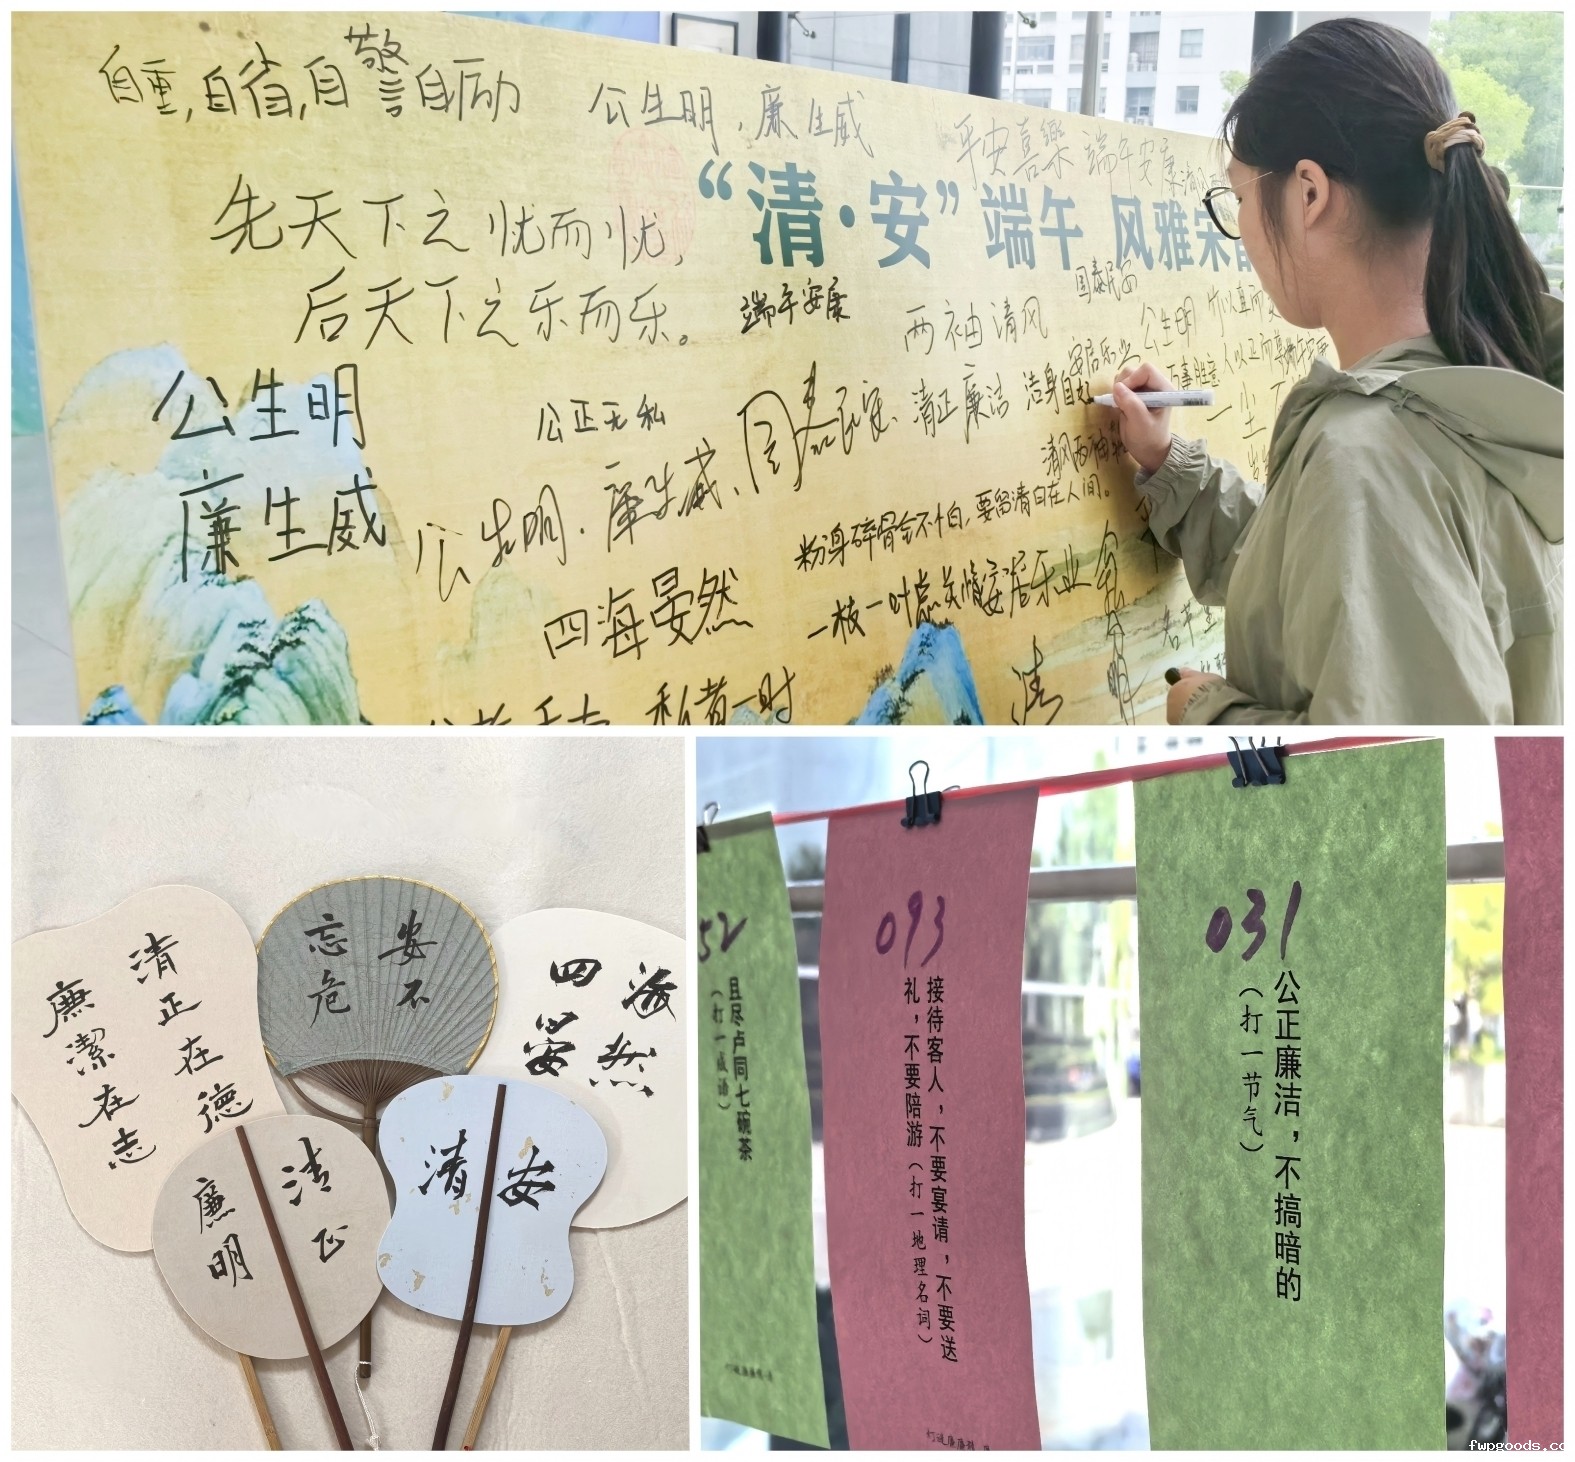 自重,自省,自警自励
公生明,廉生威
平安喜樂 端午安康
“清·安”端午 风雅宋
先天下之忧而忧,
后天下之乐而乐。
端午安康
国泰民安
两袖清风
公生明
公生明
廉生威
公正无私
国泰民安、清正廉洁
洁身自好
安居乐业
万事胜意
人以正而尊
清风两袖
公生明.廉生威、
粉身碎骨全不怕,要留清白在人间。
四海晏然
一枝一叶总关情
安居乐业
私者一时
清正在德
廉潔在志
安不
忘危
四海
晏然
清正
廉明
清安
52
且尽卢同七碗茶
(打一成语)
093
接待客人,不要宴请,不要送
礼,不要陪游(打一地理名词)
031
公正廉洁,不搞暗的
(打一节气)
fwpgoods.co